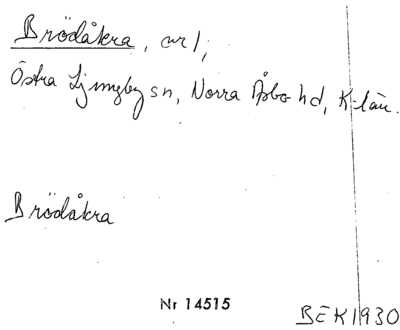 Brödåkra, nr 1,
Östra Ljungby sn, Norra Åsbo hd, K-län.
Brödåkra
Nr 14515
BEK 1930